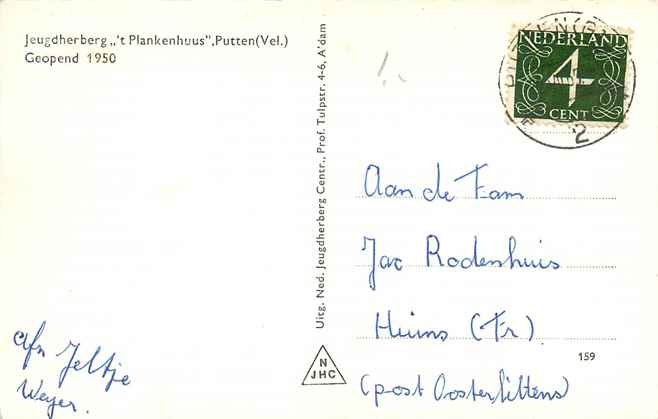 Jeugdherberg „'t Plankenhuus", Putten (Vel.)
Geopend 1950
Uitg. Ned. Jeugdherberg Centr., Prof. Tulpstr. 4-6, A'dam
NEDERLAND
4
CENT
2
Aan de Fam
Jac Rodenhuis
Huins (Fr)
(post Oosterlittens)
159
N
JHC
afz Jeltje
Weyer.